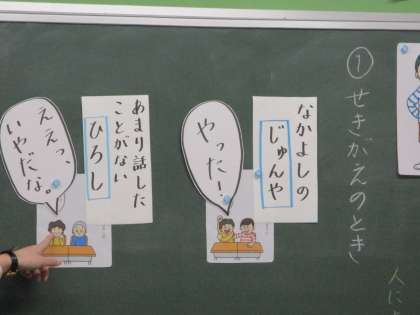 ① せきがえのとき
なかよしの
じゅんや
やったー！
あまり話した
ことがない
ひろし
ええっ、
いやだな。
人に